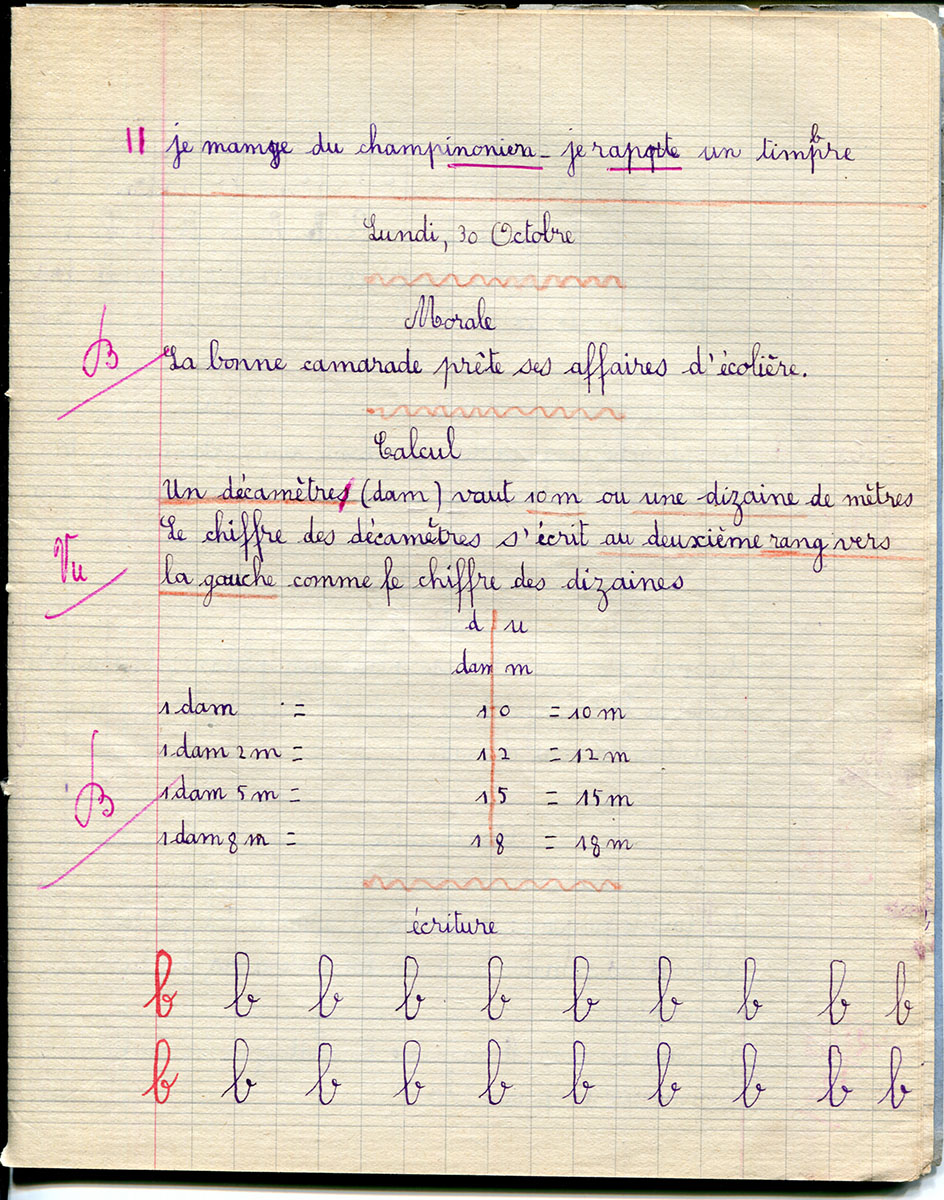 11 je mange du champinonien - je rapqte un timpbre
Lundi, 30 Octobre
Morale
B La bonne camarade prête ses affaires d'écolière.
Calcul
Un décamètres (dam) vaut 10 m ou une dizaine de mètres
Le chiffre des décamètres s'écrit au deuxième rang vers
Vu
la gauche comme le chiffre des dizaines
d u
dam m
1 dam = 1 0 = 10 m
1 dam 2 m = 1 2 = 12 m
B 1 dam 5 m = 1 5 = 15 m
1 dam 8 m = 1 8 = 18 m
écriture
b b b b b b b b b b
b b b b b b b b b b